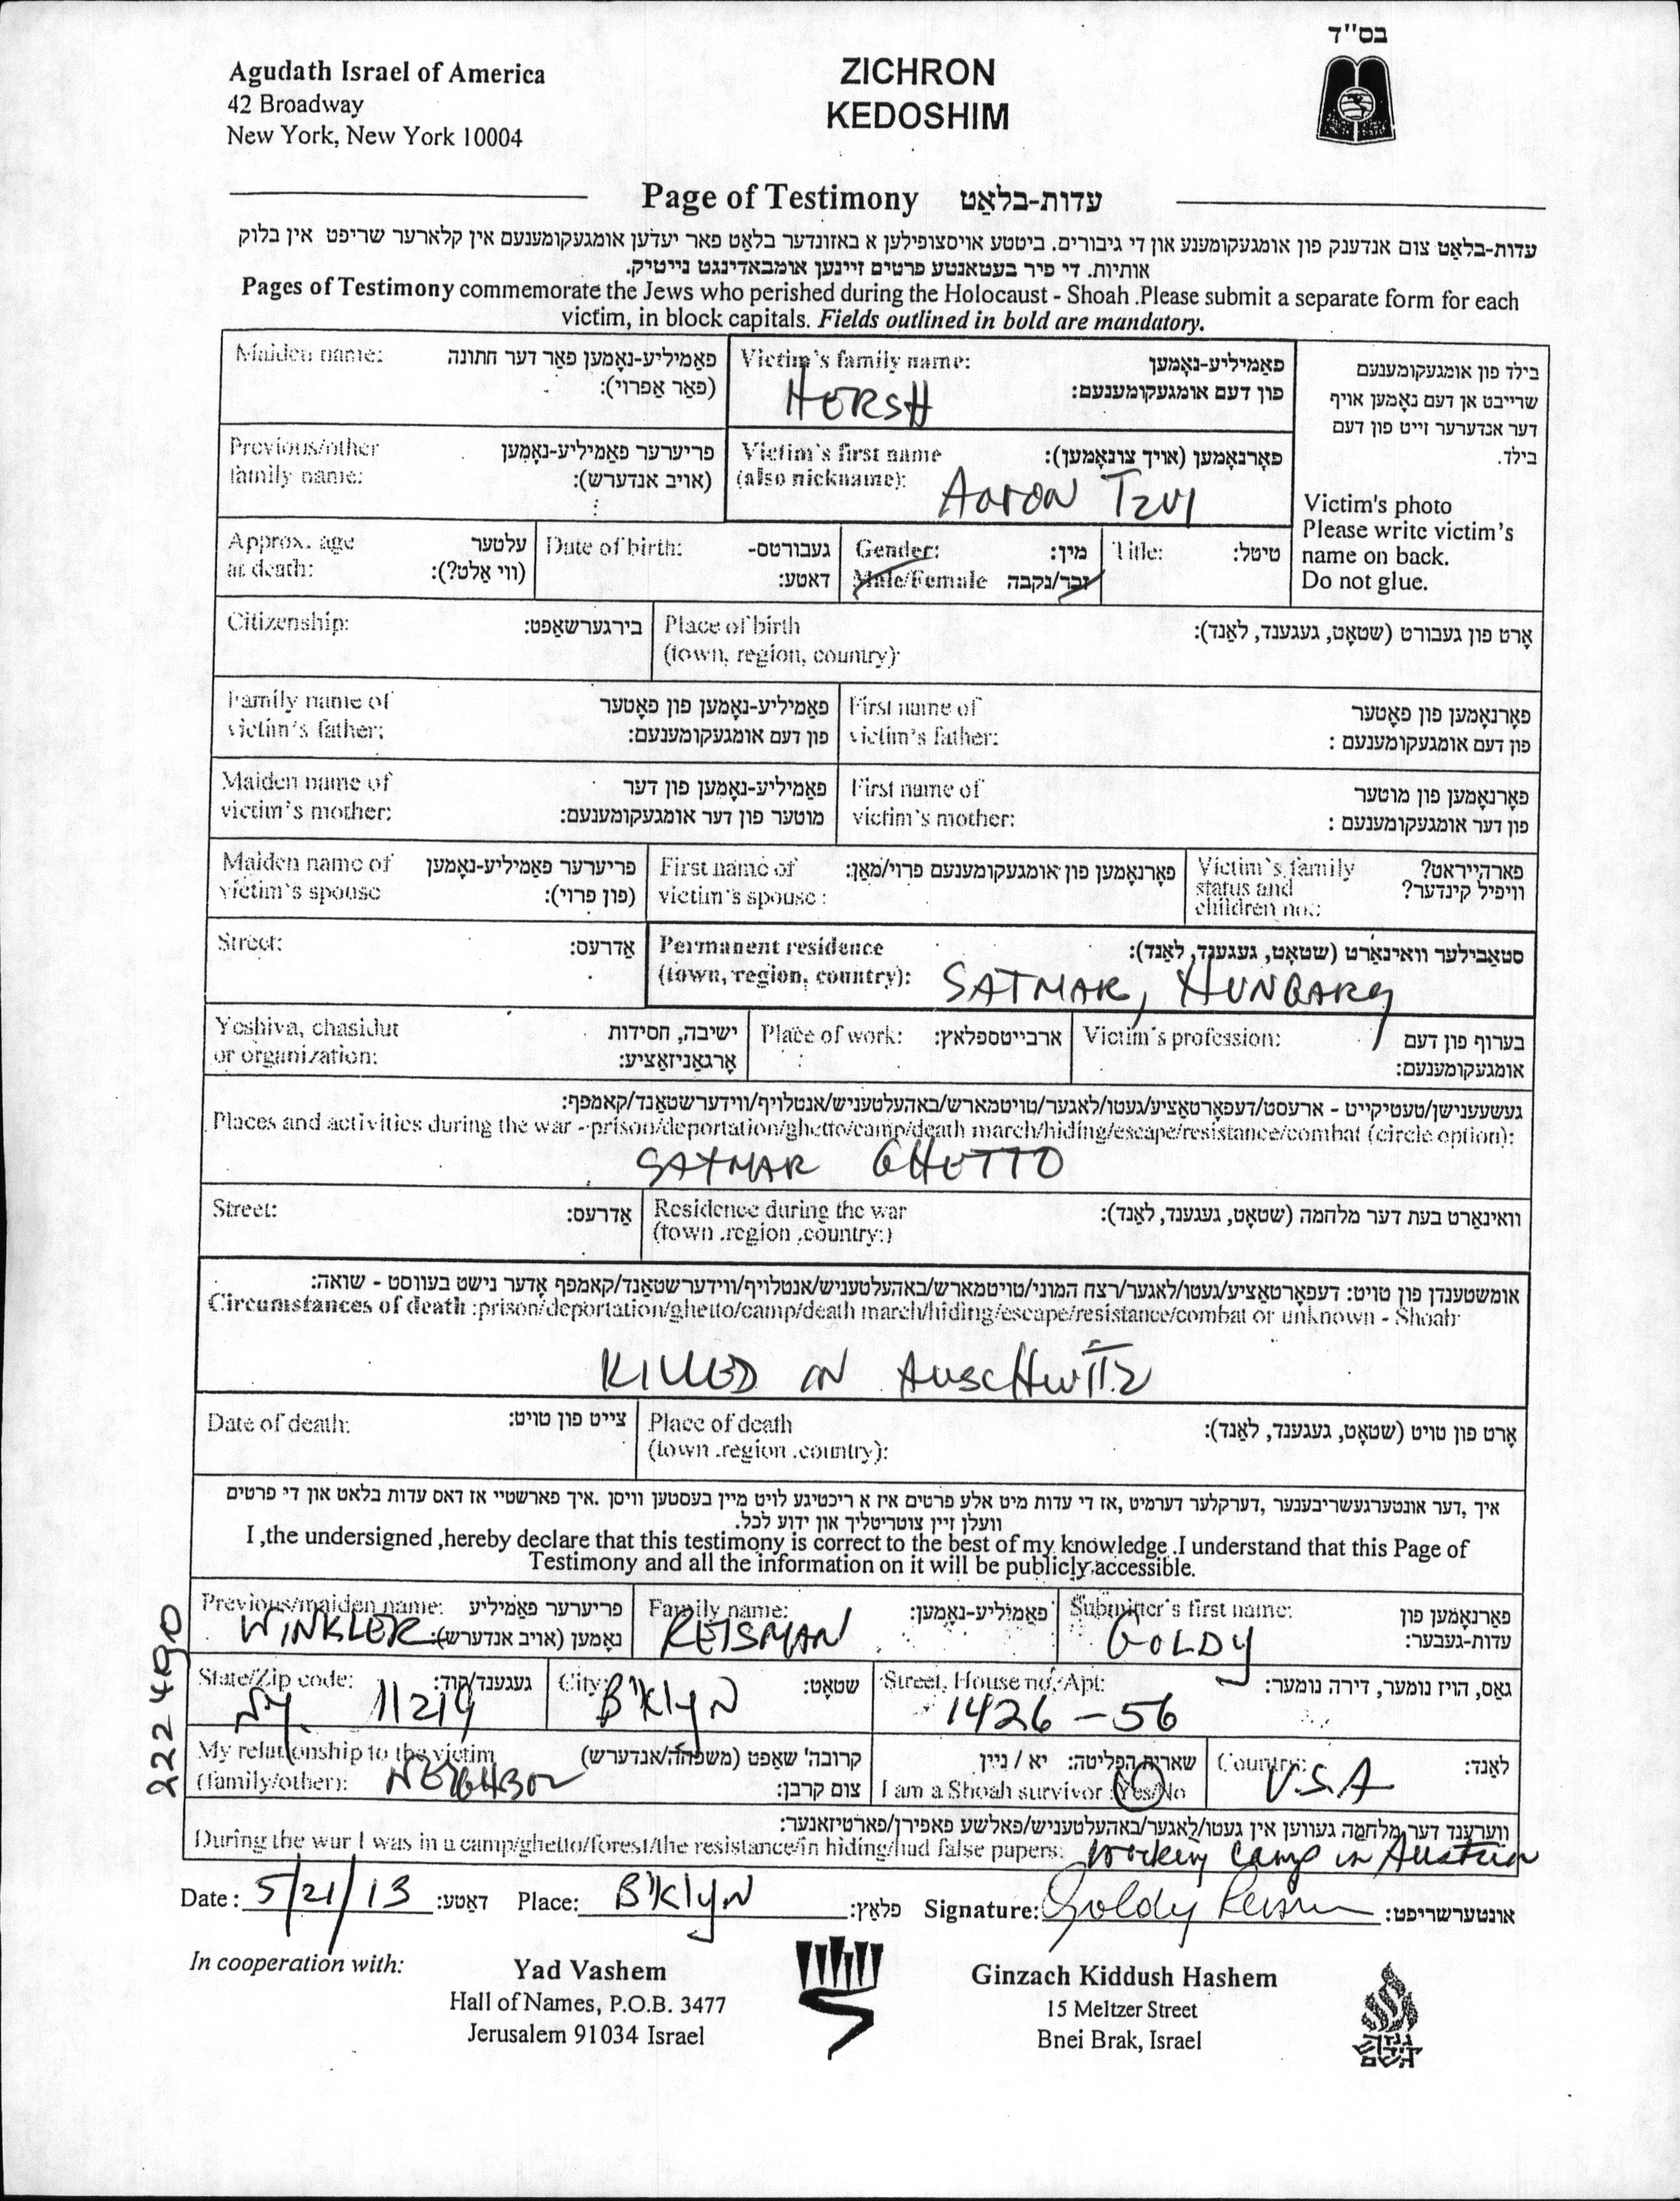 בס"ד
Agudath Israel of America
42 Broadway
New York, New York 10004
ZICHRON
KEDOSHIM
Page of Testimony עדות-בלאַט
עדות-בלאַט צום אנדענק פון אומגעקומענע און די גיבורים. ביטטע אויסצופילען א באזונדער בלאט פאר יעדען אומגעקומענעם אין קלארער שריפט אין בלוק
אותיות. די פיר בעטאנטע פרטים זיינען אומבאדינגט נייטיק.
Pages of Testimony commemorate the Jews who perished during the Holocaust - Shoah .Please submit a separate form for each
victim, in block capitals. Fields outlined in bold are mandatory.
Maiden name: פאַמיליע-נאָמען פאַר דער חתונה
(פאַר אַפרוי):
Victim's family name: פאַמיליע-נאָמען
פון דעם אומגעקומענעם:
HERSH
בילד פון אומגעקומענעם
שרייבט אן דעם נאָמען אויף
דער אנדערער זייט פון דעם
בילד.
Victim's photo
Please write victim's
name on back.
Do not glue.
Previous/other פריערער פאַמיליע-נאָמען
family name: (אויב אנדערש):
Victim's first name פאָרנאָמען (אויך צונאָמען):
(also nickname):
Aaron Tzvi
Approx. age עלטער
at death: (ווי אַלט?):
Date of birth: געבורטס-
דאטע:
Gender: מין:
Male/Female זכר/נקבה
Title: טיטל:
Citizenship: בירגערשאַפט:
Place of birth אָרט פון געבורט (שטאָט, געגענד, לאַנד):
(town, region, country)
Family name of פאַמיליע-נאָמען פון פאָטער
victim's father: פון דעם אומגעקומענעם:
First name of פאָרנאָמען פון פאָטער
victim's father: פון דעם אומגעקומענעם :
Maiden name of פאַמיליע-נאָמען פון דער
victim's mother: מוטער פון דער אומגעקומענעם:
First name of פאָרנאָמען פון מוטער
victim's mother: פון דער אומגעקומענעם :
Maiden name of פריערער פאַמיליע-נאָמען
victim's spouse (פון פרוי):
First name of פאָרנאָמען פון אומגעקומענעם פרוי/מאַן:
victim's spouse :
Victim's family פארהייראט?
status and וויפיל קינדער?
children no.:
Street: אַדרעס:
Permanent residence סטאַבילער וואוינאָרט (שטאָט, געגענד, לאַנד):
(town, region, country):
SATMAR, HUNGARY
Yeshiva, chasidut ישיבה, חסידות
or organization: אָרגאַניזאַציע:
Place of work: ארבייטספלאץ:
Victim's profession: בערוף פון דעם
אומגעקומענעם:
געשעענישן/טעטיקייט - ארעסט/דעפאָרטאַציע/געטו/לאגער/טויטמארש/באהעלטעניש/אנטלויף/ווידערשטאַנד/קאמפף:
Places and activities during the war - prison/deportation/ghetto/camp/death march/hiding/escape/resistance/combat (circle option):
SATMAR GHETTO
Street: אַדרעס:
Residence during the war וואינאַרט בעת דער מלחמה (שטאָט, געגענד, לאַנד):
(town .region .country:)
אומשטענדן פון טויט: דעפאָרטאַציע/געטו/לאגער/רצח המוני/טויטמארש/באהעלטעניש/אנטלויף/ווידערשטאַנד/קאמפף אָדער נישט בעוווסט - שואה:
Circumstances of death :prison/deportation/ghetto/camp/death march/hiding/escape/resistance/combat or unknown - Shoah
KILLED IN AUSCHWITZ
Date of death: צייט פון טויט:
Place of death אָרט פון טויט (שטאָט, געגענד, לאַנד):
(town .region .country):
איך ,דער אונטערגעשריבענער ,דערקלער דערמיט ,אז די עדות מיט אלע פרטים איז א ריכטיגע לויט מיין בעסטען וויסן .איך פארשטיי אז דאס עדות בלאט און די פרטים
וועלן זיין צוטריטליך און ידוע לכל.
I ,the undersigned ,hereby declare that this testimony is correct to the best of my knowledge .I understand that this Page of
Testimony and all the information on it will be publicly accessible.
Previous/maiden name: פריערער פאַמיליע
נאָמען (אויב אנדערש):
WINKLER
Family name: פאַמיליע-נאָמען:
REISMAN
Submitter's first name: פאַרנאָמען פון
עדות-געבער:
GOLDY
State/Zip code: געגענד/קוד:
N.Y. 11219
City: שטאָט:
B'klyN
Street, House no. Apt: גאַס, הויז נומער, דירה נומער:
1426 - 56
My relationship to the victim קרובה' שאַפט (משפחה/אנדערש)
(family/other): צום קרבן:
NEIGHBOR
שארית הפליטה: יא / ניין
I am a Shoah survivor :Yes/No
Country: לאַנד:
U.S.A
ווערענד דער מלחמה געווען אין געטו/לאַגער/באהעלטעניש/פאלשע פאפירן/פארטיזאנער:
During the war I was in a camp/ghetto/forest/the resistance/in hiding/had false papers: Working Camp in Austria
Date: 5/21/13 דאַטע: Place: B'klyN פלאַץ: Signature: Goldy Reisman אונטערשריפט:
222490
In cooperation with:
Yad Vashem
Hall of Names, P.O.B. 3477
Jerusalem 91034 Israel
Ginzach Kiddush Hashem
15 Meltzer Street
Bnei Brak, Israel
גנזך
קידוש
השם